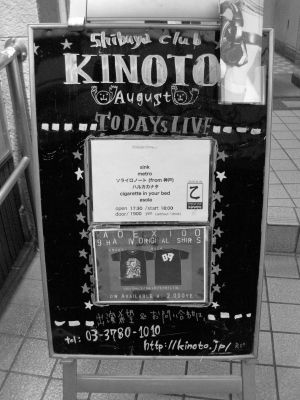 Shibuya club
KINOTO
August
TODAYs LIVE
sink
metro
ソライロノート (from 神戸)
ハルカカナタ
cigarette in your bed
esola
open 17:30 /start 18:00
乙
09
ON AVAILABLE
出演希望 お問い合わせは
tel: 03-3780-1010
http://kinoto.jp/